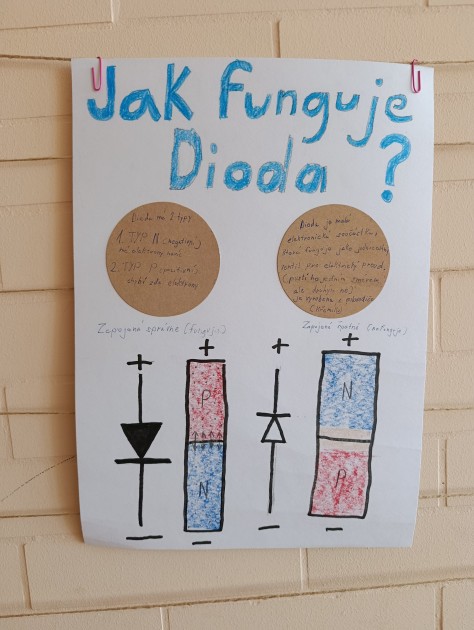 Jak funguje
Dioda ?
Dioda má 2 typy
1. TYP N (negativní)
má elektrony navíc
2. TYP P (pozitivní)
chybí zde elektrony
Dioda je malá
elektronická součástka,
která funguje jako jednosměrný
ventil pro elektrický proud,
(pustí ho jedním směrem
ale druhým ne)
je vyrobena z polovodiče
Zapojená správně (funguje)
Zapojená špatně (nefunguje)
+ + + +
P N
N P
— — — —